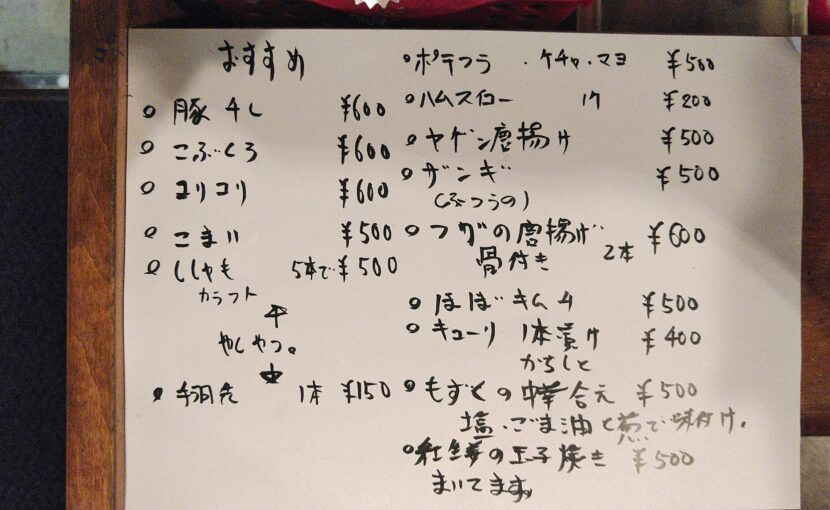 おすすめ
○ 豚チレ ¥600
○ こぶくろ ¥600
○ コリコリ ¥600
○ こまい ¥500
○ ししゃも 5本で¥500
カラフト
↑
やしやつ。
↓
○ 手羽先 1本 ¥150
○ポテフラ ・ケチャ・マヨ ¥500
○ハムスロー 1ケ ¥200
○ヤゲン唐揚け ¥500
○ザンギ ¥500
(ふつうの)
○フグの唐揚げ 2本 ¥600
骨付き
○ ほぼキムチ ¥500
○キューリ 1本漬け ¥400
からしと
○もずくの中華合え ¥500
塩、ごま油と煎で味付け。
○紅生姜の玉子焼き ¥500
まいてます。